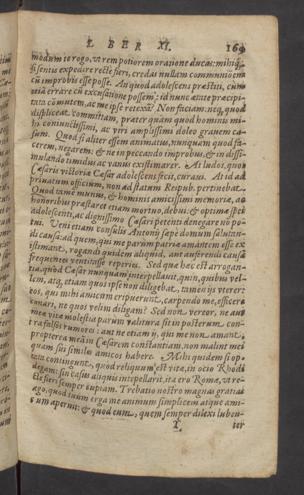 LIBER XI. 169
modum te rogo, ut rem potiorem oratione ducas: mihiq;
si sentis expedire rectè fieri, credas nullam communionem
cũ improbis esse posse. An quod adolescens præstiti, cùm
etiã errare cũ excusatione possem, id nunc ætate præcipi-
tata cõmutem, ac me ipse retexã? Non faciam: neq, quod
displiceat committam, præterquàm quod hominis mi-
hi coniunctissimi, ac viri amplissimi doleo gravem ca-
sum. Quod si aliter essem animatus, nunquam quod fa-
cerem, negarem: & ne in peccando improbus, & in dissi-
mulando timidus ac vanus existimarer. At ludos, quos
Cæsaris victoriæ Cæsar adolescens fecit, curavi. At id ad
privatum officium, non ad statum Reipub. pertinebat.
Quod tamen munus, & hominis amicissimi memoriæ, ac
honoribus præstare etiam mortui, debui: & optimæ spei
adolescenti, ac dignissimo Cæsare petenti denegare nõ po-
tui. Veni etiam consulis Antonij sæpe domum salutan-
di causa: ad quem, qui me parum patriæ amantem esse ex-
istimant, rogandi quidem aliquid, aut auferendi causâ
frequentes ventitare reperies. Sed quæ hæc est arrogan-
tia, quòd Cæsar nunquam interpellavit, quin, quibus vel-
lem, atq, etiam quos ipse non diligebat, tamen ijs uterer:
eos, qui mihi amicum eripuerunt, carpendo me, efficere
conari, ne quos velim diligam? Sed non vereor, ne aut
meæ vitæ modestia parum valitura sit in posterum con-
tra falsos rumores: aut ne etiam ij, qui me non amant,
propter meã in Cæsarem constantiam, non malint mei
quàm sui similes amicos habere. Mihi quidem si op-
tata contingunt, quod reliquum est vitæ, in otio Rhodi
degam: sin casus aliquis interpellarit, ita ero Romæ, ut re-
ctè fieri semper cupiam. Trebatio nostro magnas gratias
ago, quod tuum erga me animum simplicem atque ami-
cum aperuit: & quod eum, quem semper dilexi luben-
ter